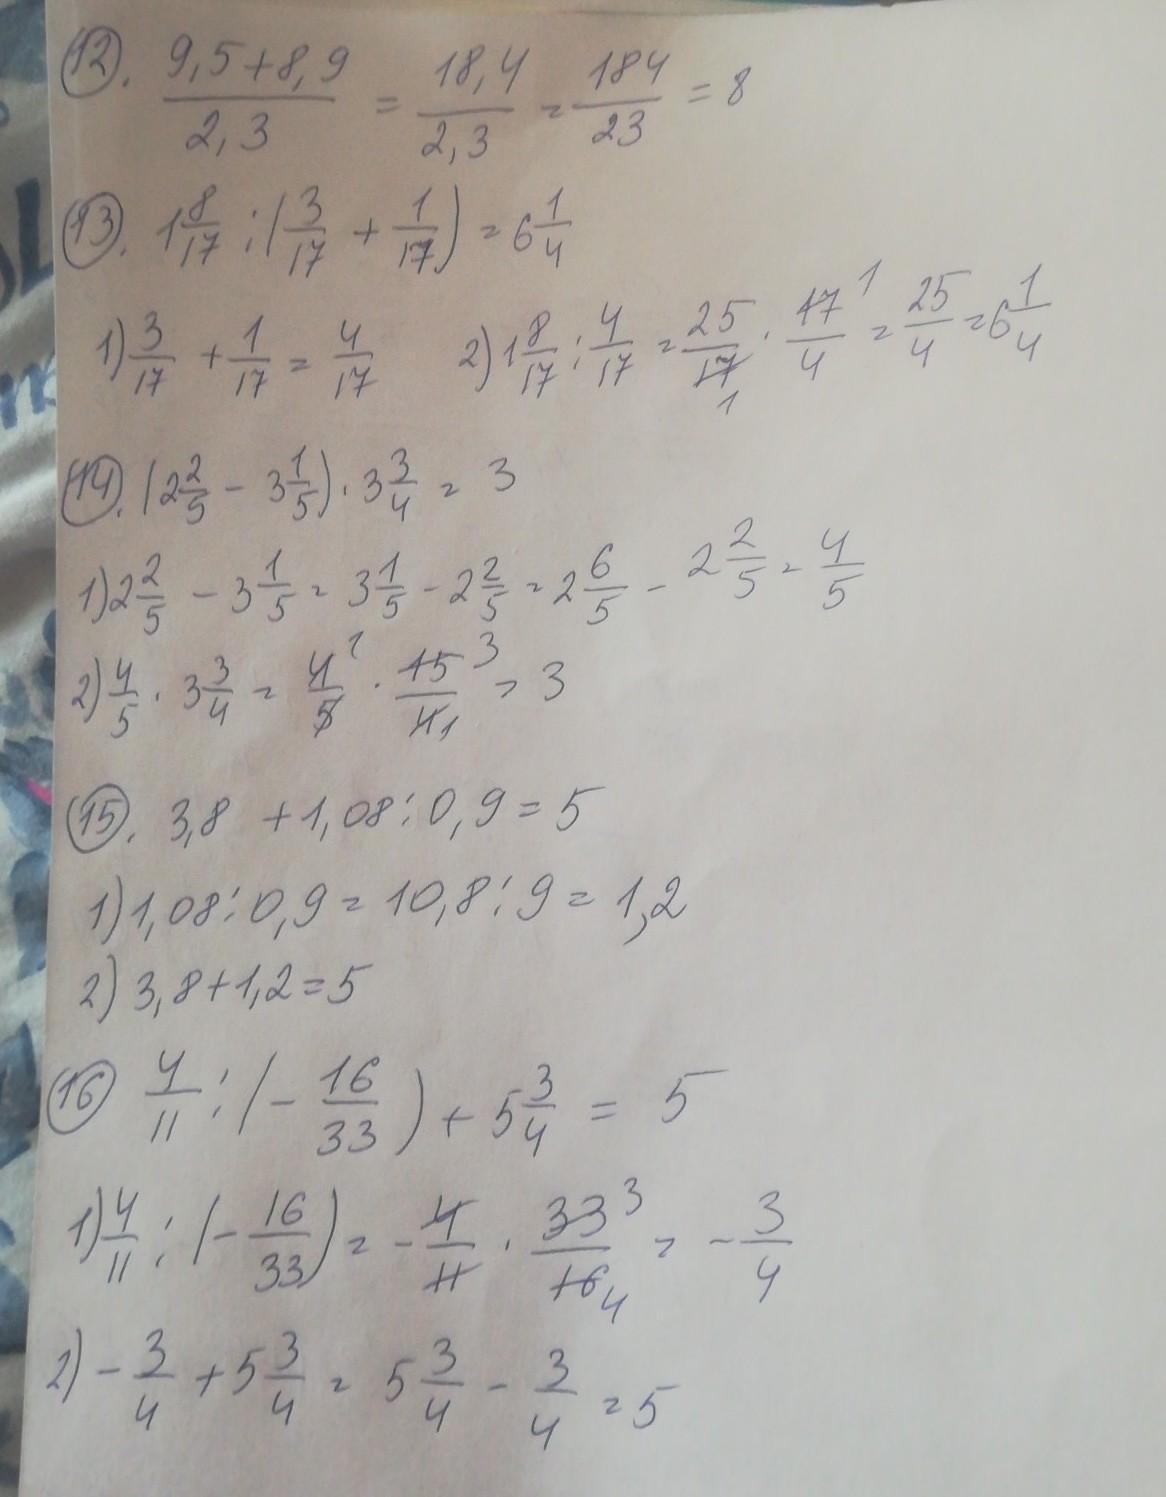 12. (9,5+8,9)/2,3 = 18,4/2,3 = 184/23 = 8
13. 1 8/17 : (3/17 + 1/17) = 6 1/4
1) 3/17 + 1/17 = 4/17 2) 1 8/17 : 4/17 = 25/17 1 · 17/4 1 = 25/4 = 6 1/4
14. (2 2/5 - 3 1/5) · 3 3/4 = 3
1) 2 2/5 - 3 1/5 = 3 1/5 - 2 2/5 = 2 6/5 - 2 2/5 = 4/5
2) 4/5 · 3 3/4 = 4/5 1 · 15/4 3 1 = 3
15. 3,8 + 1,08 : 0,9 = 5
1) 1,08 : 0,9 = 10,8 : 9 = 1,2
2) 3,8 + 1,2 = 5
16 4/11 : (- 16/33) + 5 3/4 = 5
1) 4/11 : (- 16/33) = - 4/11 · 33/16 3 4 = - 3/4
2) - 3/4 + 5 3/4 = 5 3/4 - 3/4 = 5